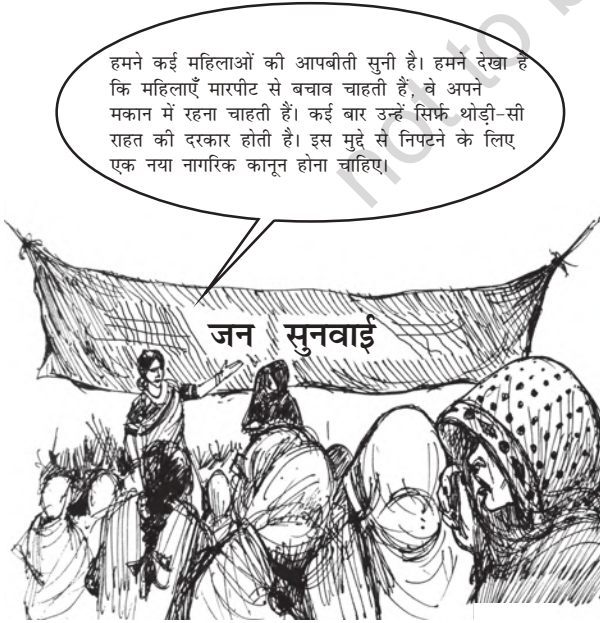 हमने कई महिलाओं की आपबीती सुनी है। हमने देखा है
कि महिलाएँ मारपीट से बचाव चाहती हैं, वे अपने
मकान में रहना चाहती हैं। कई बार उन्हें सिर्फ़ थोड़ी-सी
राहत की दरकार होती है। इस मुद्दे से निपटने के लिए
एक नया नागरिक कानून होना चाहिए।
not to b
जन सुनवाई